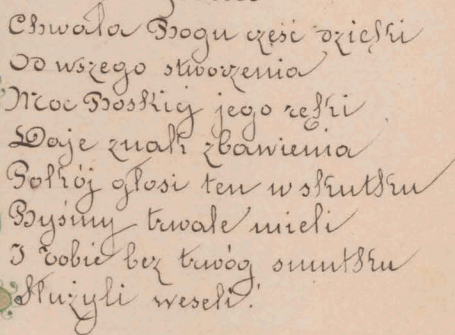 Chwała Bogu cześć dzięki
Od wszego stworzenia
Moc Boskiej jego ręki
Daje znak zbawienia
Pokój głosi ten w skutku
Byśmy trwale mieli
I Tobie bez trwóg smutku
Służyli weseli!